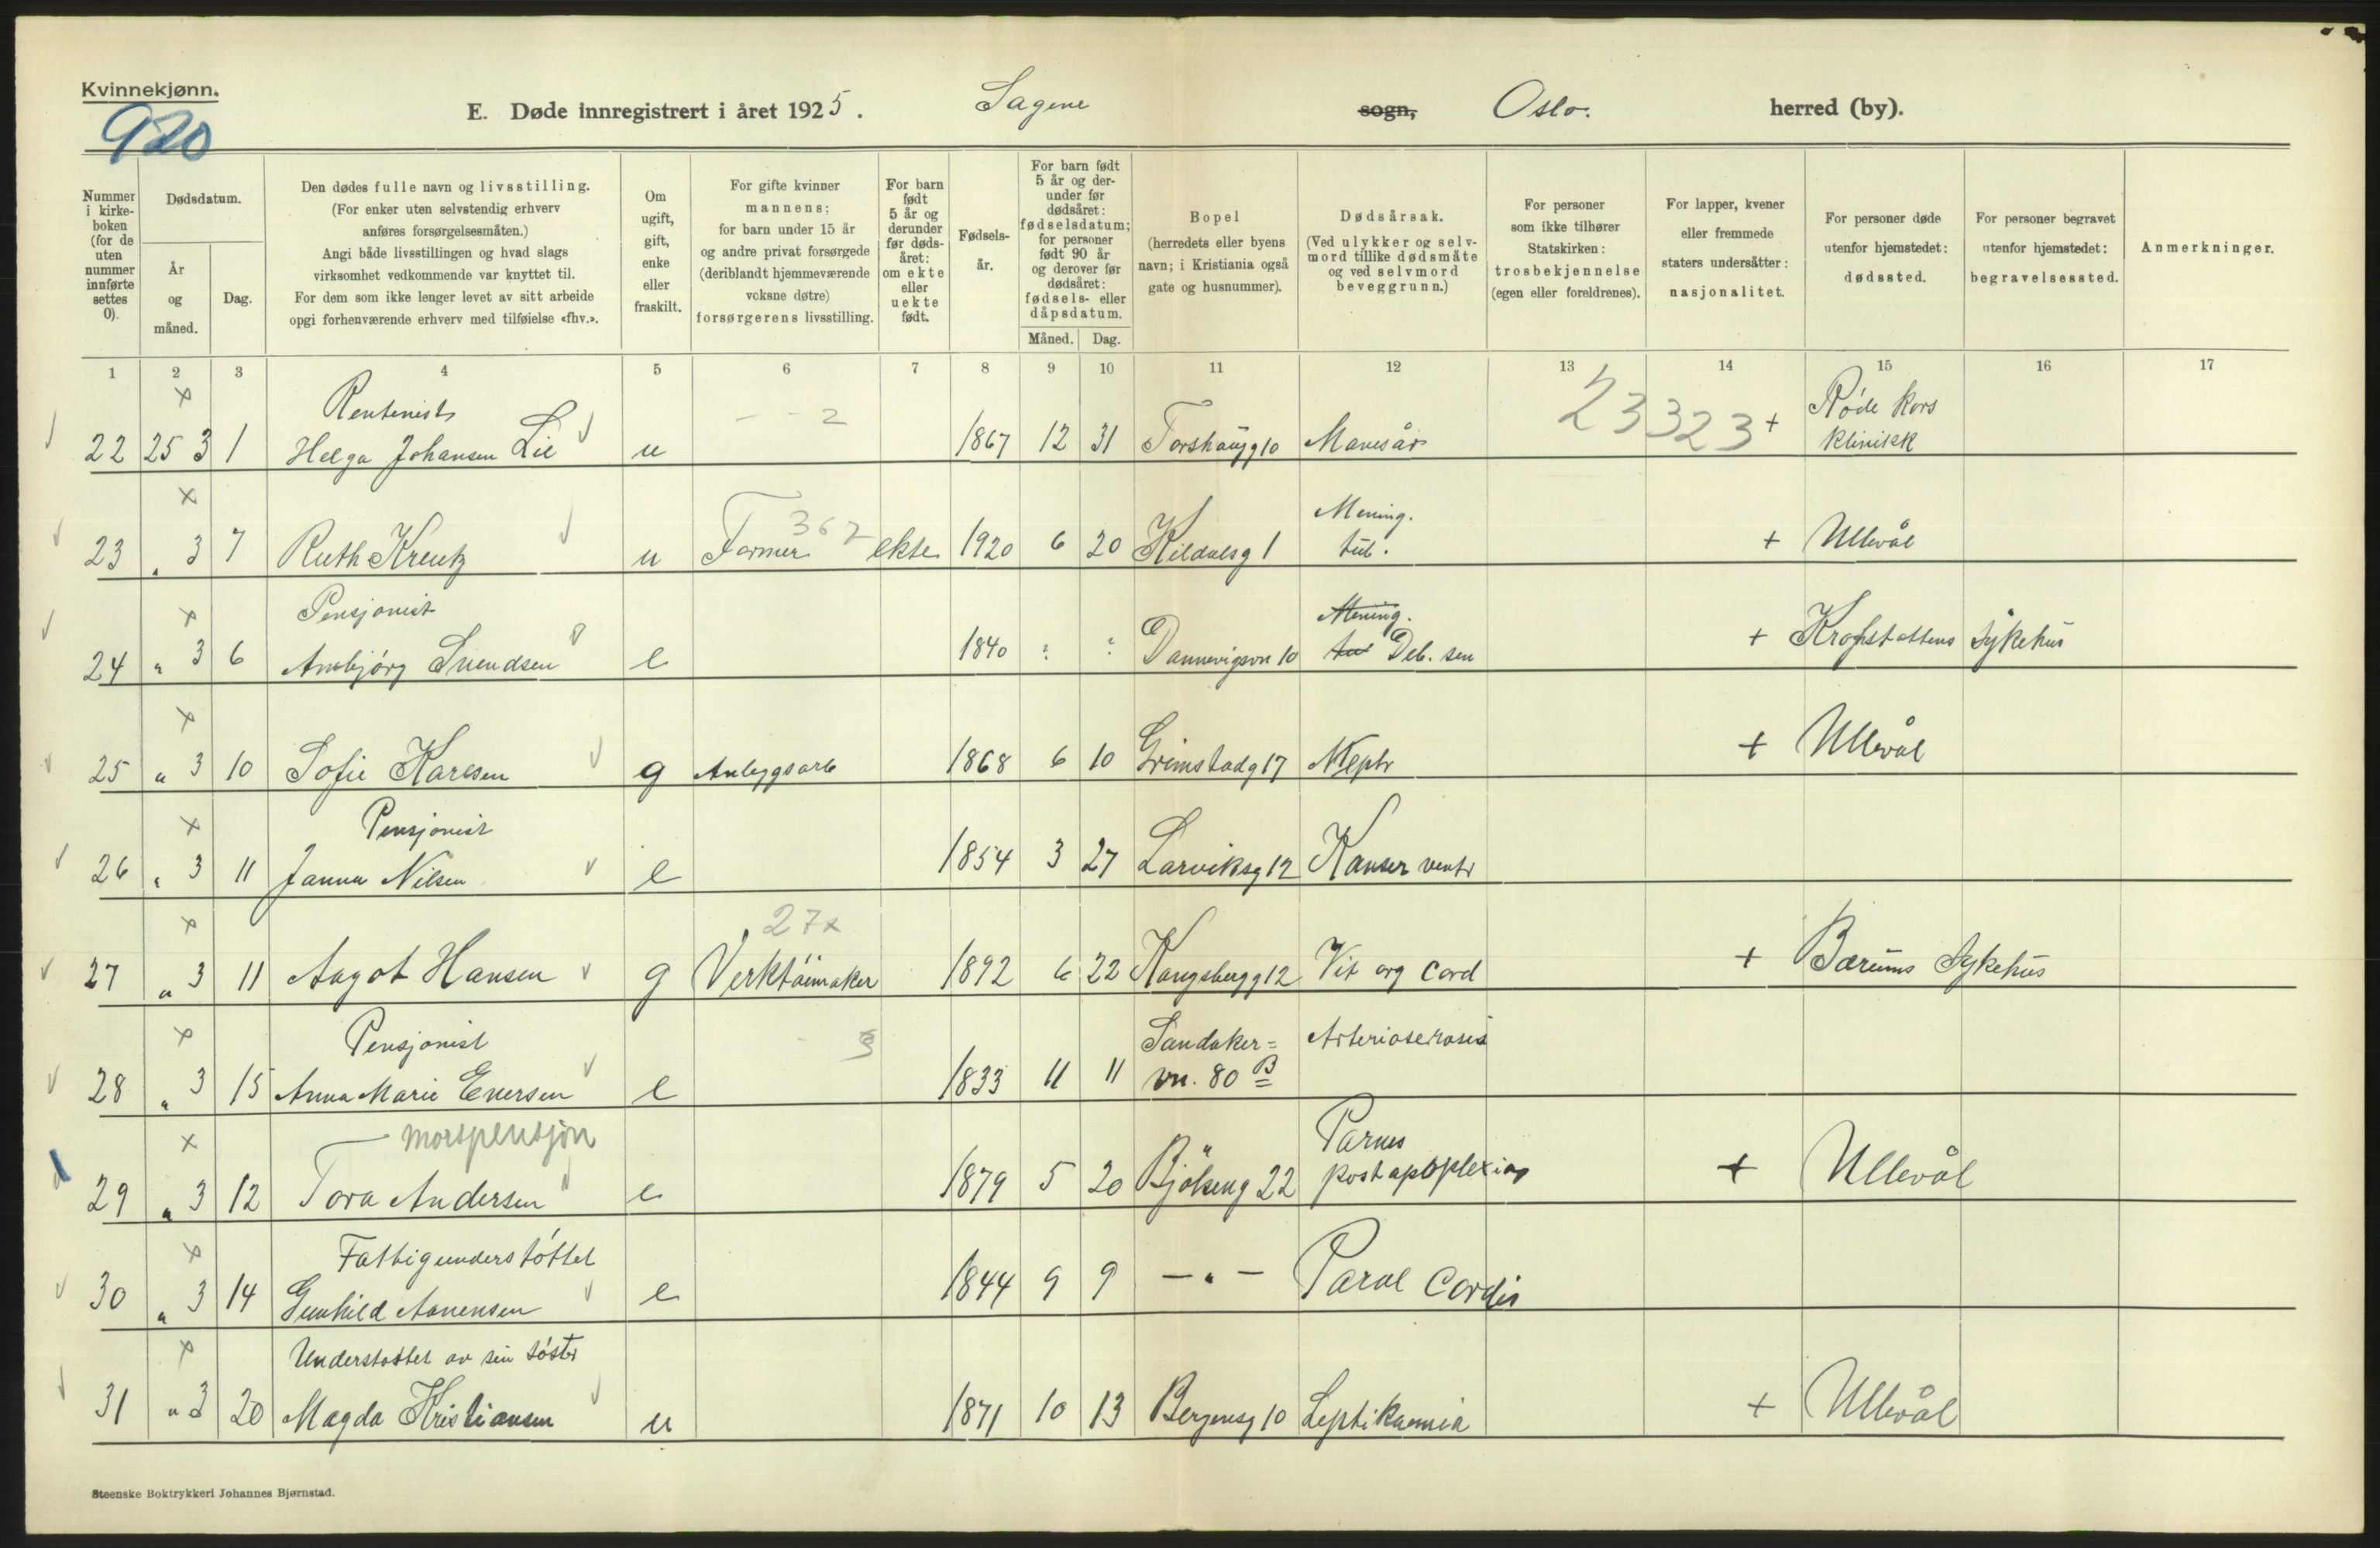 Kvinnekjønn.
920
E. Døde innregistrert i året 1925. Sagene sogn, Oslo. herred (by).
Nummer i kirke-boken (for de uten nummer innførte settes 0).
Dødsdatum.
År og måned.
Dag.
Den dødes fulle navn og livsstilling.
(For enker uten selvstendig erhverv anføres forsørgelsesmåten.)
Angi både livsstillingen og hvad slags virksomhet vedkommende var knyttet til.
For dem som ikke lenger levet av sitt arbeide opgi forhenværende erhverv med tilføielse «fhv.».
Om ugift, gift, enke eller fraskilt.
For gifte kvinner mannens; for barn under 15 år og andre privat forsørgede (deriblandt hjemmeværende voksne døtre) forsørgerens livsstilling.
For barn født 5 år og derunder før døds-året: om ekte eller uekte født.
Fødsels-år.
For barn født 5 år og der-under før dødsåret: fødselsdatum; for personer født 90 år og derover før dødsåret: fødsels- eller dåpsdatum.
Måned. Dag.
Bopel (herredets eller byens navn; i Kristiania også gate og husnummer).
Dødsårsak. (Ved ulykker og selv-mord tillike dødsmåte og ved selvmord beveggrunn.)
For personer som ikke tilhører Statskirken: trosbekjennelse (egen eller foreldrenes).
For lapper, kvener eller fremmede staters undersåtter: nasjonalitet.
For personer døde utenfor hjemstedet: dødssted.
For personer begravet utenfor hjemstedet: begravelsessted.
Anmerkninger.
1 2 3 4 5 6 7 8 9 10 11 12 13 14 15 16 17
x Rentenist - - 2 23323 + Røde Kors
22 25 3 1 Helga Johansen Lie u 1867 12 31 Torshaugg 10 Klinikk
x 367 Mening.
23 " 3 7 Ruth Kreutz u Former ekte 1920 6 20 Kildalsg 1 tub. + Ullevål
x Pensjonist Mening.
24 " 3 6 Svendsen e 1840 ? ? Dannevigsvn 10 tub Deb. sen + Sykehus
x
25 " 3 10 Sofie Karlsen g Anleggsarb 1868 6 10 Grimstadg 17 Nephr + Ullevål
x Pensjonist
26 " 3 11 Janna Nilsen e 1854 3 27 Larviksg 12 Kanser ventr
x 27x
27 " 3 11 Aagot Hansen g Verktøimaker 1892 6 22 Kongsbergg 12 Vit org cord + Bærums Sykehus
x Pensjonist 3 Sandaker=
28 " 3 15 Anna Marie Eversen e 1833 11 11 vn. 80 B
x morspensjon
29 " 3 12 Tora Andersen e 1879 5 20 Bjølseng 22 post apoplexiap + Ullevål
x Fattigunderstøttet
30 " 3 14 Gunhild Aanensen e 1844 9 9 — " — Paral Cordis
x Understøttet av sin søster
31 " 3 20 Magda Kristiansen u 1871 10 13 Bergensg 10 Septikæmia + Ullevål
Steenske Boktrykkeri Johannes Bjørnstad.